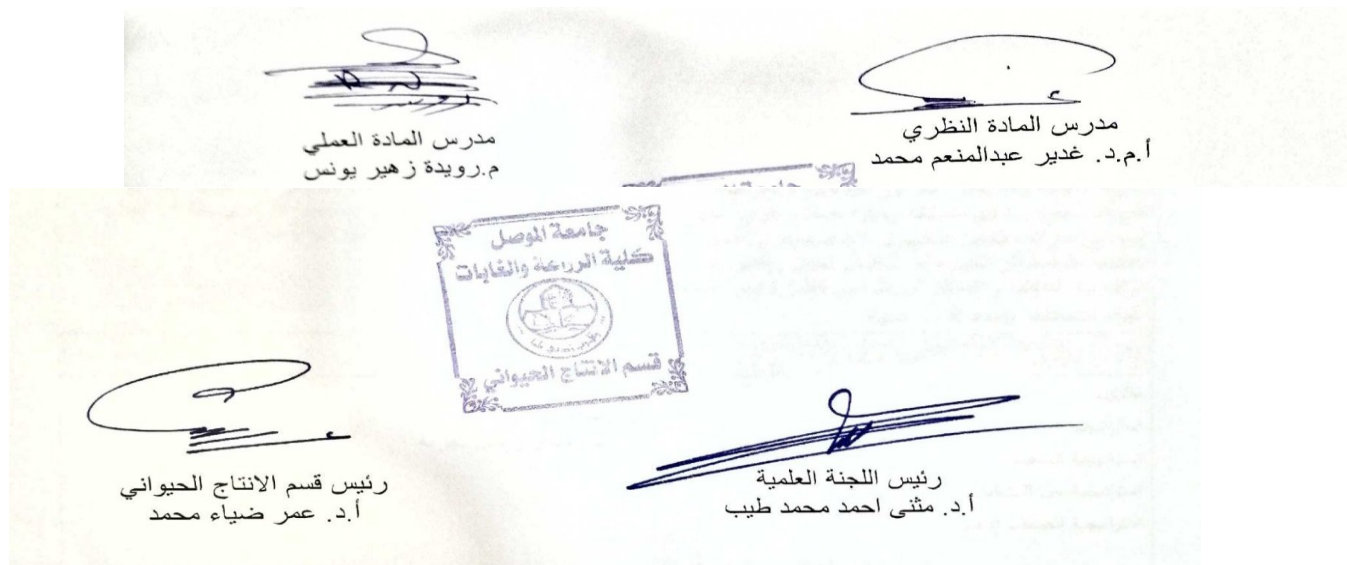 مدرس المادة النظري
أ.م.د. غدير عبدالمنعم محمد
مدرس المادة العملي
م.رويدة زهير يونس
جامعة الموصل
كلية الزراعة والغابات
قسم الانتاج الحيواني
رئيس اللجنة العلمية
أ.د. مثنى احمد محمد طيب
رئيس قسم الانتاج الحيواني
أ.د. عمر ضياء محمد